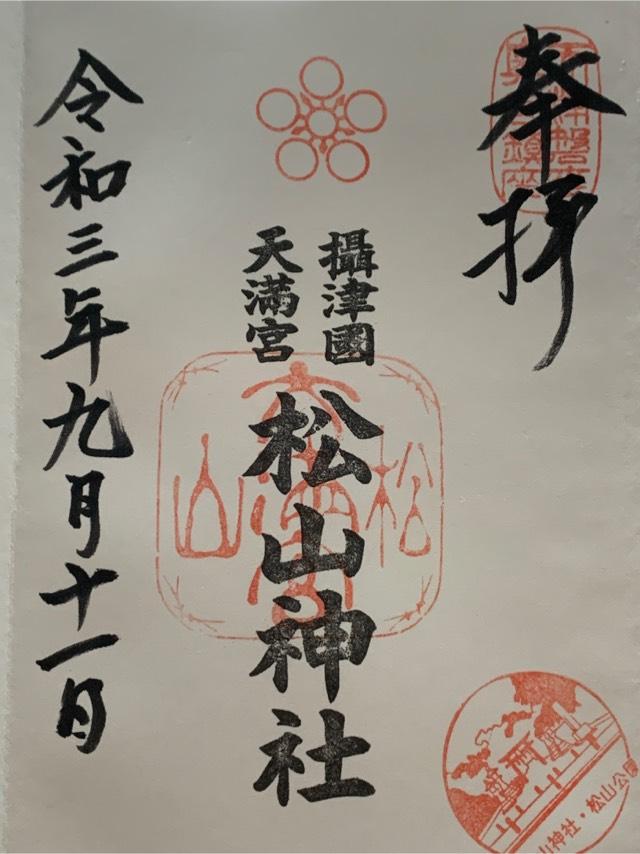 奉拝
攝津國
天満宮
松山神社
松 山
令和三年九月十一日
山神社・松山公園